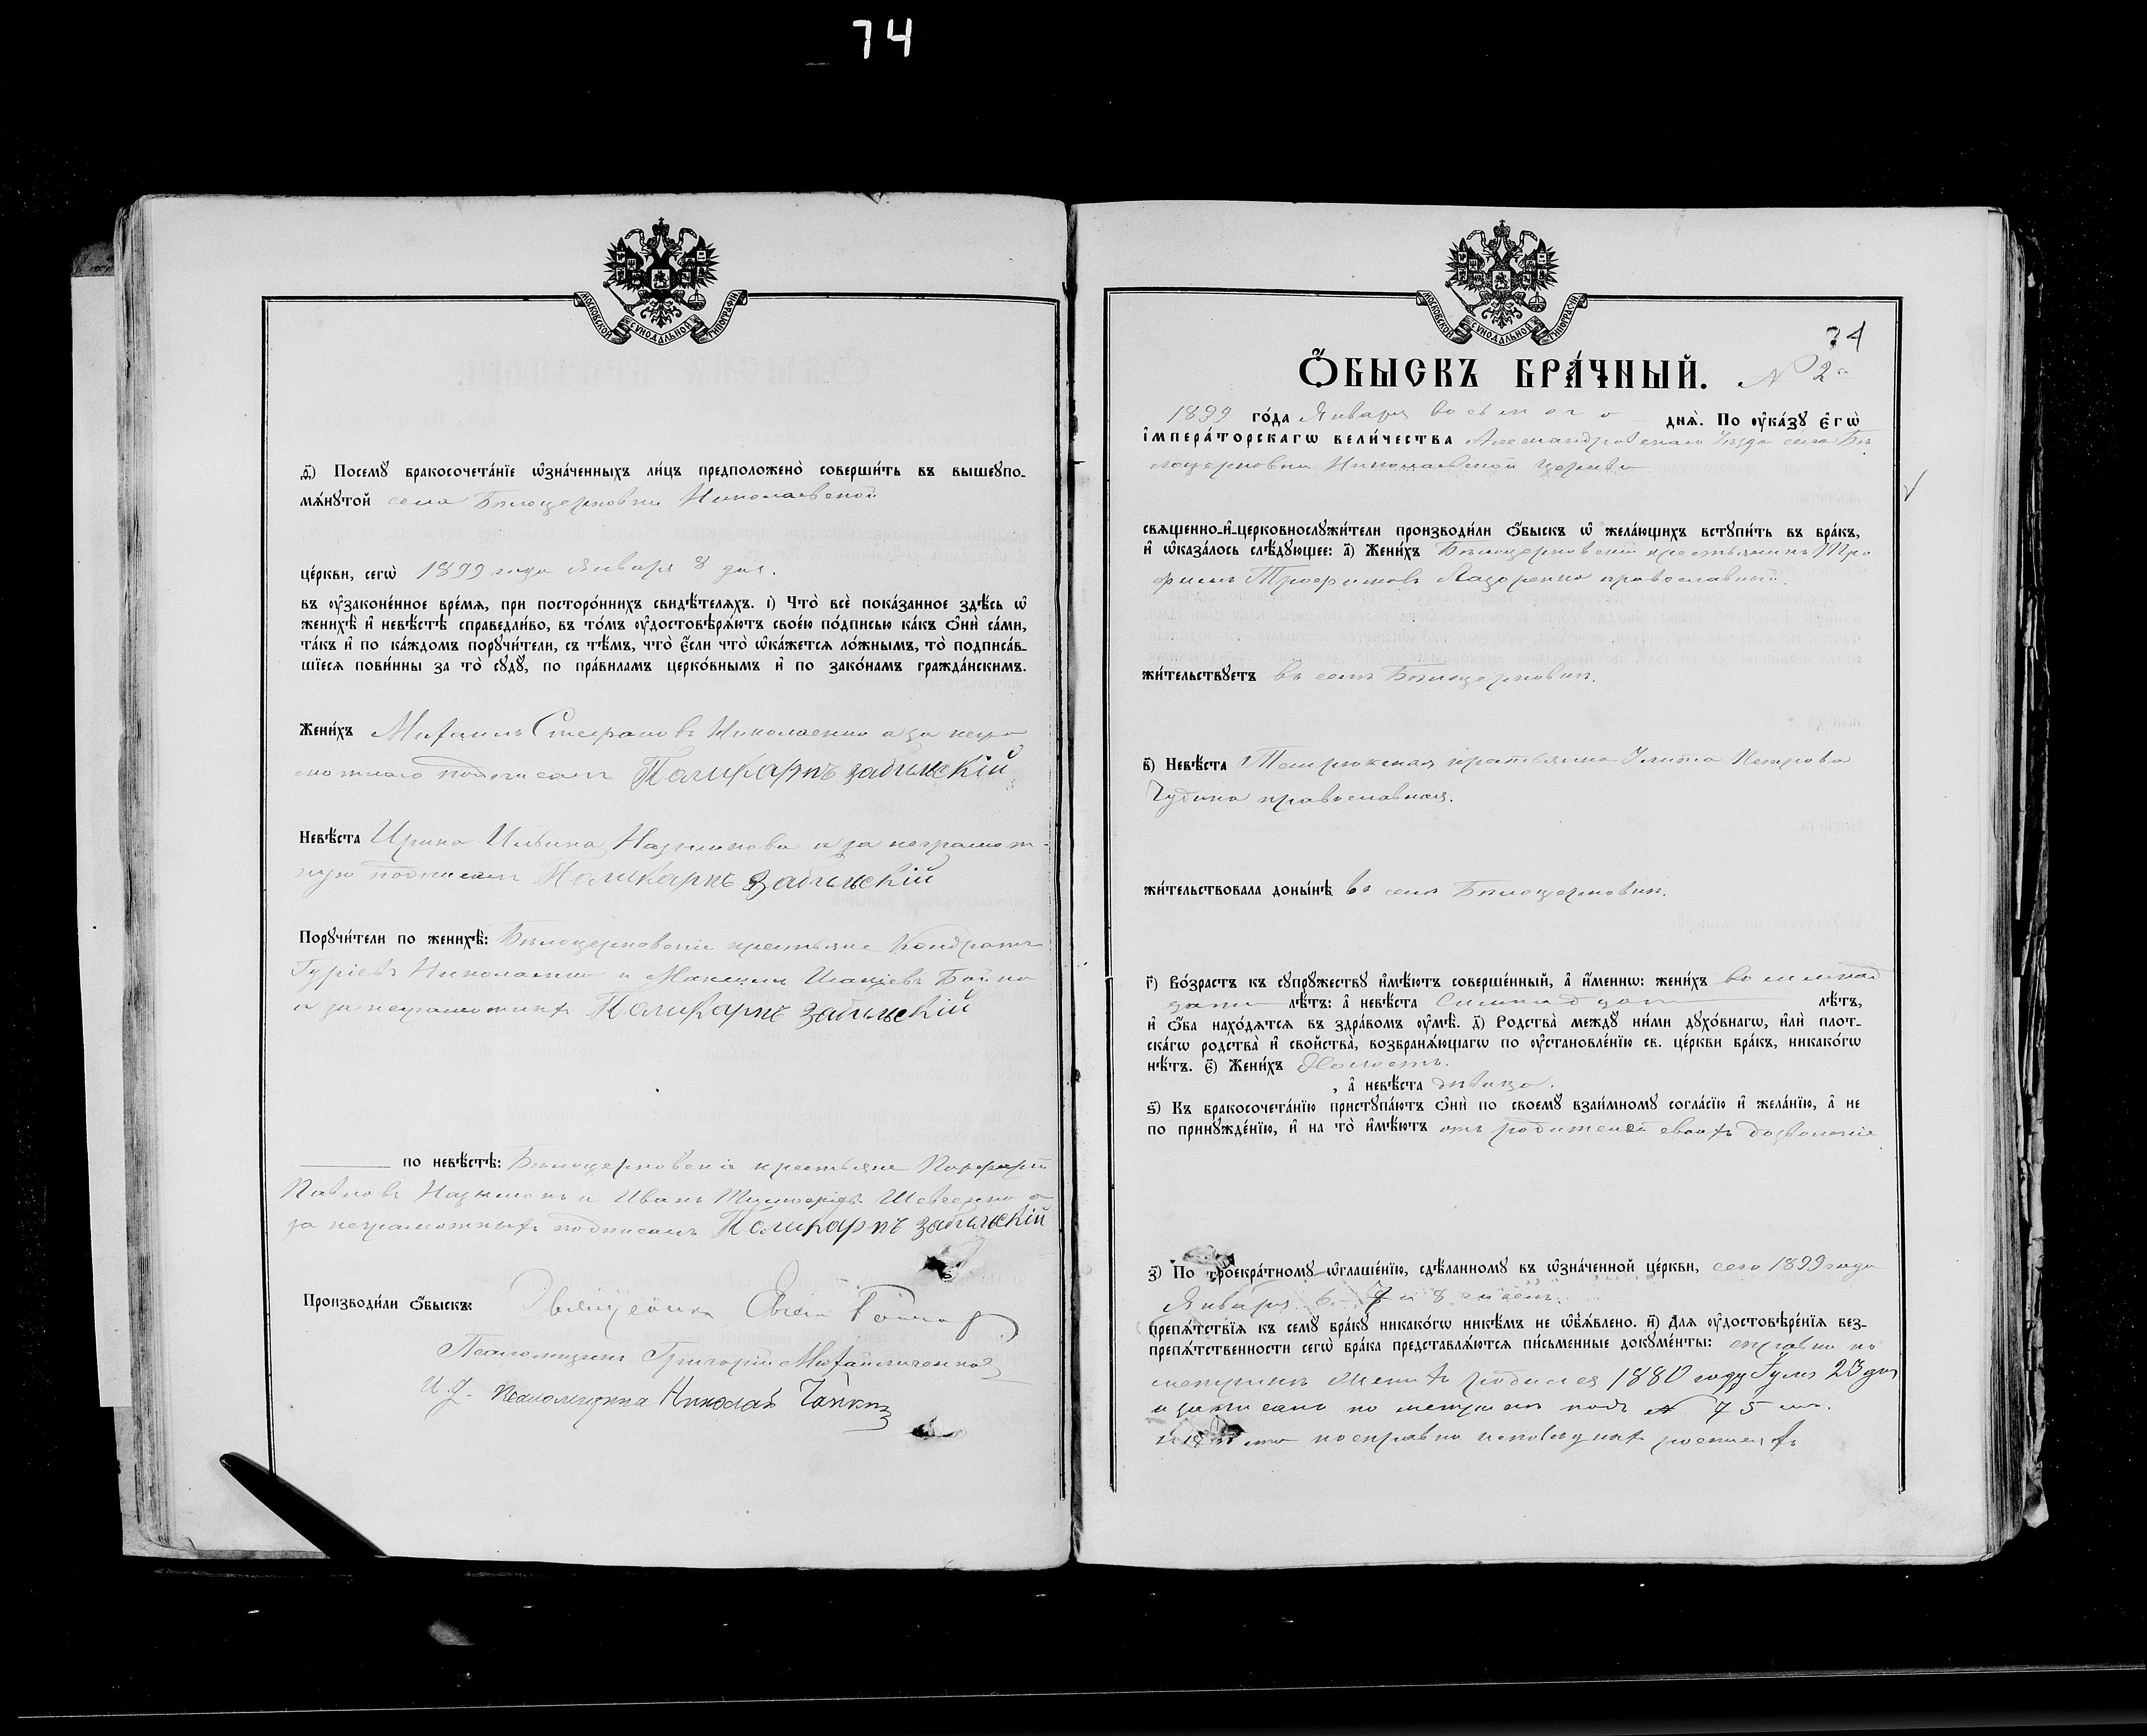 74
МОСКОВСКОЙ СѴНОДАЛЬНОЙ ТИПОГРАФІИ
д҃) Посемꙋ̀ бракосочета́нїе ѡ҆зна́ченныхъ ли́цъ предположено̀ соверши́ть въ вышеупо-
мѧ́нꙋтой села Бѣлоцерковки Николаевской
це́ркви, сегѡ̀ 1899 года Января 8 дня.
въ ᲂу҆зако́нное вре́мѧ, при посторо́ннихъ свидѣ́телѧхъ. і҃) Что̀ всѐ пока́занное здѣ́сь ѡ҆
женихѣ̀ и҆ невѣ́стѣ справедли́во, въ то́мъ ᲂу҆достовѣрѧ́ютъ свое́ю по́дписью ка́къ ѻ҆нѝ са́ми,
та́къ и҆ по ка́ждомъ порꙋчи́тели, съ тѣ́мъ, что̀ є҆́сли что̀ ѡ҆ка́жетсѧ ло́жнымъ, то̀ подписа́в-
шїесѧ пови́нны за то̀ сꙋдꙋ̀, по пра́виламъ церко́внымъ и҆ по зако́намъ гражда́нскимъ.
Жени́хъ Михаилъ Стефановъ Николаенко а за негра
мотнаго подписалъ Поликарпъ Забѣльскій
Невѣ́ста Ирина Ильина а за неграмот-
ную подписалъ Поликарпъ Забѣльскій
Порꙋчи́тели по женихѣ̀: Бѣлоцерковскіе крестьяне Кондратъ
Гуріевъ Николаенко и Максимъ Бойко
а за неграмотныхъ Поликарпъ Забѣльскій
по невѣ́стѣ: Бѣлоцерковскіе крестьяне Порфирій
Павловъ и Иванъ Шевченко а
за неграмотныхъ подписалъ Поликарпъ Забѣльскій
Производи́ли ѻ҆́быскъ: Священникъ
Псаломщикъ Григорій Михайличенко
И. д. Псаломщика Николай
МОСКОВСКОЙ СѴНОДАЛЬНОЙ ТИПОГРАФІИ
74
Ѻ҆́БЫСКЪ БРА́ЧНЫЙ. № 2й
1899 го́да Января восьмого днѧ̀. По ᲂу҆ка́зꙋ є҆гѡ̀
і҆мпера́торскагѡ вели́чества Александровскаго уѣзда села Бѣ
лоцерковки Николаевской церкви
свѧще́нно-и҆-церковнослꙋжи́тели производи́ли ѻ҆́быскъ ѡ҆ жела́ющихъ встꙋпи́ть въ бра́къ,
и҆ ѡ҆каза́лось слѣ́дꙋющее: а҃) Жени́хъ Бѣлоцерковскій крестьянинъ Тро
фимъ Трофимовъ Лазоренко православный.
жи́тельствꙋетъ въ селѣ Бѣлоцерковкѣ.
в҃) Невѣ́ста Темрюкская крестьянка Улита Петрова
Чудина православная.
жи́тельствовала доны́нѣ въ селѣ Бѣлоцерковкѣ.
г҃) Во́зрастъ къ сꙋпрꙋ́жествꙋ и҆мѣ́ютъ соверше́нный, а҆ и҆́меннѡ: жени́хъ восемнад
цати лѣ́тъ: а҆ невѣ́ста семнадцати лѣ́тъ,
и҆ ѻ҆́ба нахо́дѧтсѧ въ здра́вомъ ᲂу҆мѣ̀. д҃) Родства̀ междꙋ̀ ни́ми дꙋхо́внагѡ, и҆лѝ пло́т-
скагѡ родства̀ и҆ свойства̀, возбранѧ́ющагѡ по ᲂу҆становле́нїю св. це́ркви бра́къ, никако́гѡ
нѣ́тъ. є҃) Жени́хъ Холостъ.
, а҆ невѣ́ста дѣвица.
ѕ҃) Къ бракосочета́нїю пристꙋпа́ютъ ѻ҆нѝ по своемꙋ̀ взаи́мномꙋ согла́сїю и҆ жела́нїю, а҆ не
по принꙋжде́нїю, и҆ на то̀ и҆мѣ́ютъ отъ родителей своихъ дозволеніе
з҃) По троекра́тномꙋ ѡ҆глаше́нїю, сдѣ́ланномꙋ въ ѡ҆зна́ченной це́ркви, сего 1899 года
Января 6. 7 и 8 чиселъ.
препѧ́тствїѧ къ семꙋ̀ бра́кꙋ никако́гѡ никѣ́мъ не ѡ҆б̾ѧ́влено. и҃) Для ᲂу҆достовѣре́нїѧ без-
препѧ́тственности сегѡ̀ бра́ка представлѧ́ютсѧ пи́сьменные докꙋме́нты: справка по
метрикѣ Женихъ родился 1880 году Іулія 23 дня
и записанъ по метрикѣ подъ № 75 мъ.
по справкѣ исповѣдныхъ росписяхъ